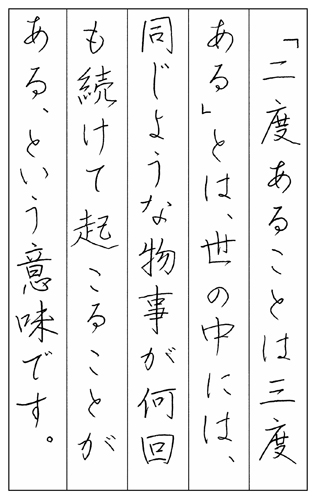 「二度あることは三度
ある」とは、世の中には、
同じような物事が何回
も続けて起こることが
ある、という意味です。